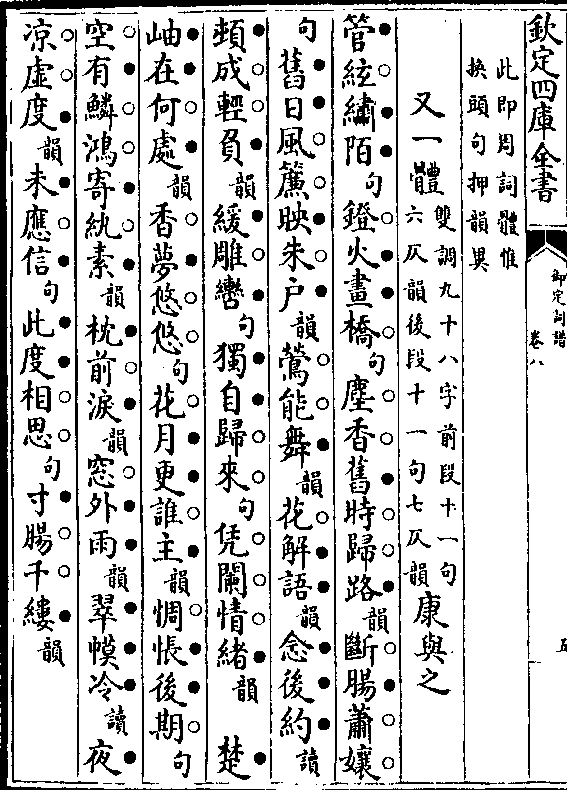 欽定四庫全書
御定詞譜
卷八
五
此即周詞體惟
換頭句押韻異
又一體
雙調九十八字前段十一句
六仄韻後段十一句七仄韻
康與之
管絃繡陌句鐙火畫橋句塵香舊時歸路韻斷腸蕭孃
句舊日風簾映朱户韻鶯能舞韻花解語韻念後約讀
頻成輕負韻緩雕轡句獨自歸來句凭闌情緒韻 楚
岫在何處韻香夢悠悠句花月更誰主韻惆悵後期句
空有鱗鴻寄紈素韻枕前淚韻窓外雨韻翠幙冷讀夜
凉虛度韻未應信句此度相思句寸腸千縷韻